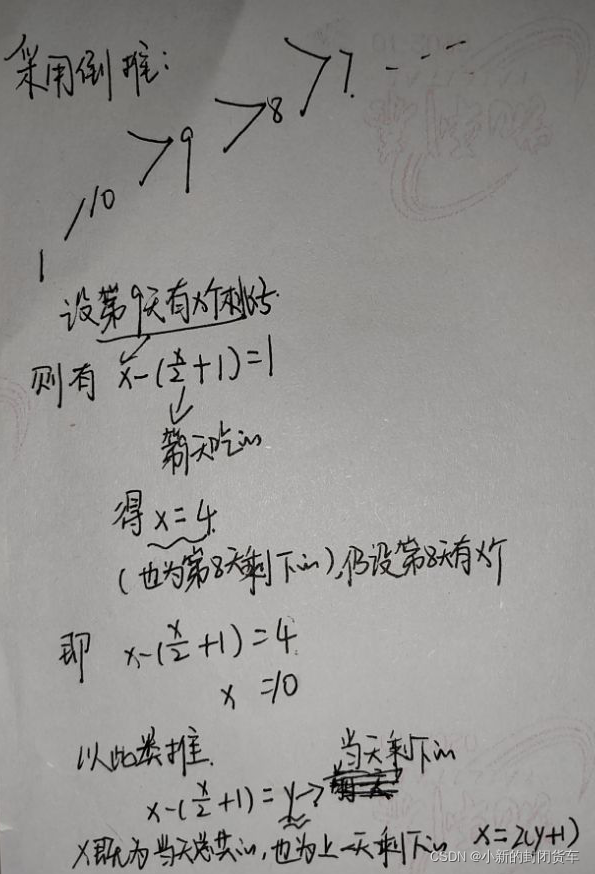 采用倒推：
1 10 > 9 > 8 > 7 ---
设第9天有x个桃子.
则有 x-(x/2+1)=1
第9天吃的
得 x=4.
(也为第8天剩下的),仍设第8天有x个
即 x-(x/2+1)=4
x=10
以此类推.
当天剩下的
x-(x/2+1)=y→
x既为当天总共的,也为上一天剩下的 x=2(y+1)
CSDN @小新的封闭货车